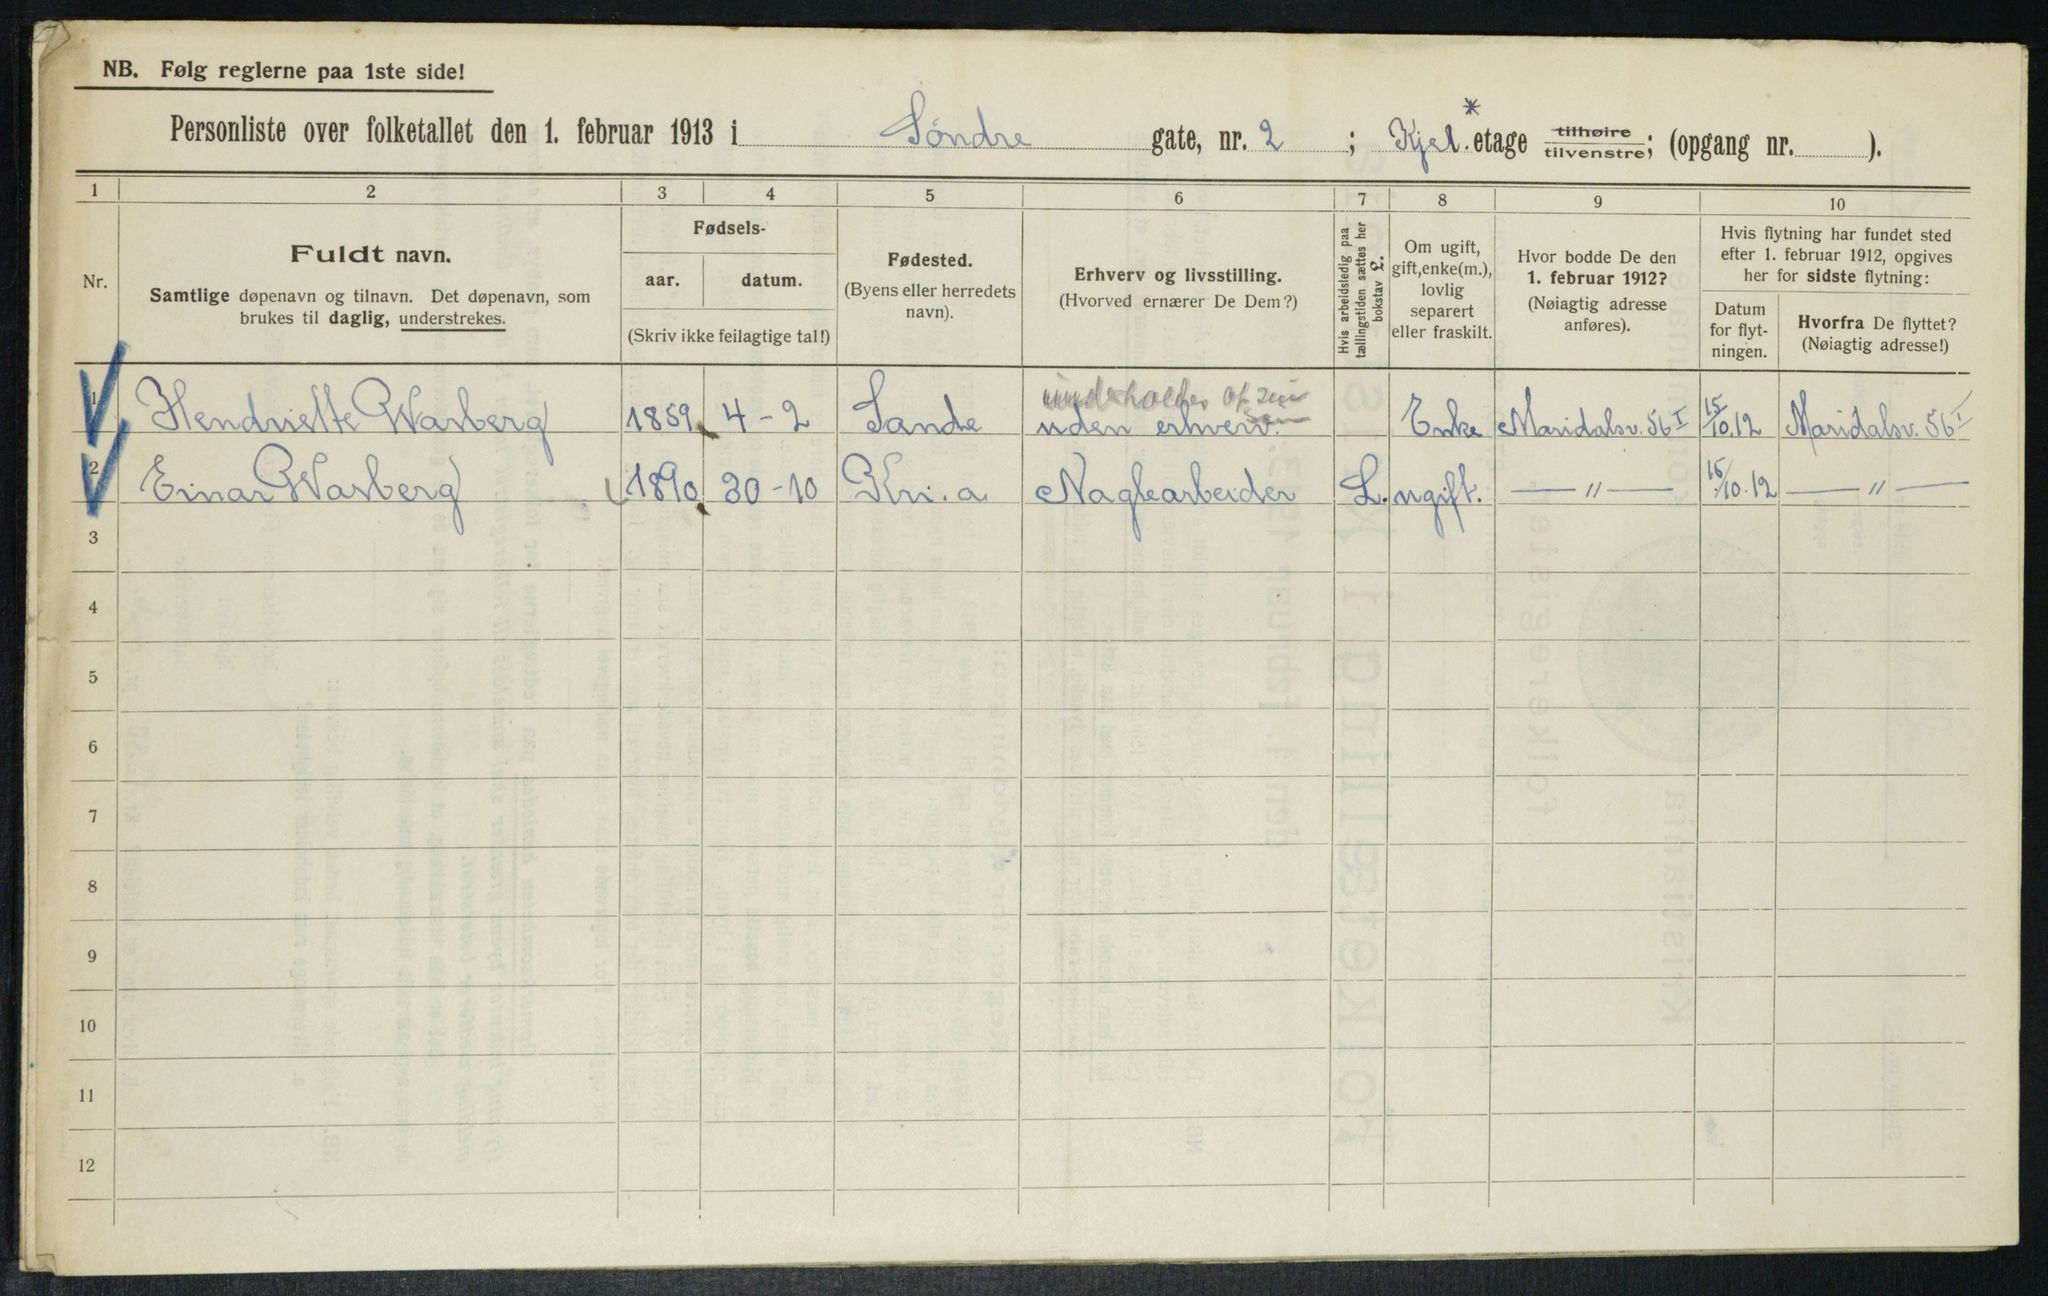 NB. Følg reglerne paa 1ste side!
Personliste over folketallet den 1. februar 1913 i Søndre gate, nr. 2 ; Kjel.* etage tilhøire tilvenstre; (opgang nr. ).
1 2 3 4 5 6 7 8 9 10
Nr.
Fuldt navn.
Samtlige døpenavn og tilnavn. Det døpenavn, som
brukes til daglig, understrekes.
Fødsels-
aar. datum.
(Skriv ikke feilagtige tal!)
Fødested.
(Byens eller herredets
navn).
Erhverv og livsstilling.
(Hvorved ernærer De Dem?)
Hvis arbeidsledig paa
tællingstiden sættes her
bokstav L.
Om ugift,
gift, enke(m.),
lovlig
separert
eller fraskilt.
Hvor bodde De den
1. februar 1912?
(Nøiagtig adresse
anføres).
Hvis flytning har fundet sted
efter 1. februar 1912, opgives
her for sidste flytning:
Datum
for flyt-
ningen.
Hvorfra De flyttet?
(Nøiagtig adresse!)
underholdes af sin
søn
1 Hendriette Warberg 1859 4-2 Sande uden erhverv. Enke Maridalsv. 56 I 15/10.12 Maridalsv. 56 I
2 Einar Warberg 1890 30-10 Kri.a Naglearbeider L. ugift. — " — 15/10.12 — " —
3
4
5
6
7
8
9
10
11
12